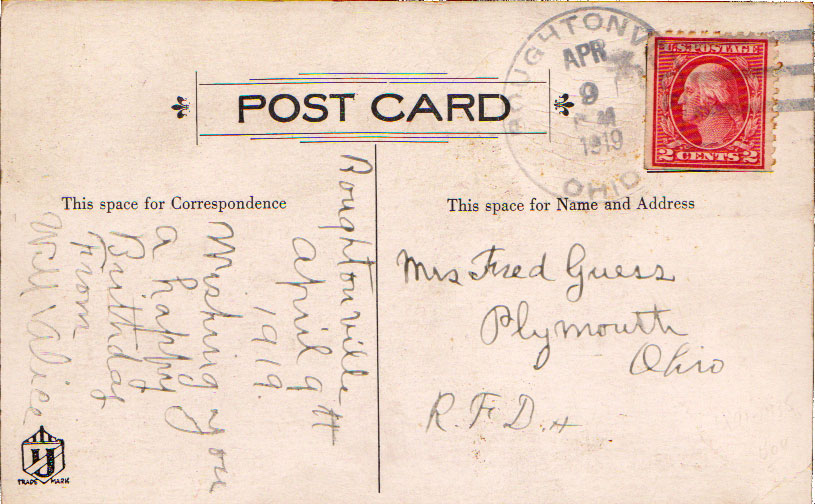 POST CARD
BOUGHTONVI
APR
9
PM
1919
OHIO
U.S. POSTAGE
2 CENTS 2
This space for Correspondence
This space for Name and Address
Boughtonville
April 9th
1919.
Wishing you
a happy
Birthday
From
Will & Alice
Mrs Fred Guess
Plymouth
Ohio
R. F. D.
TRADE MARK